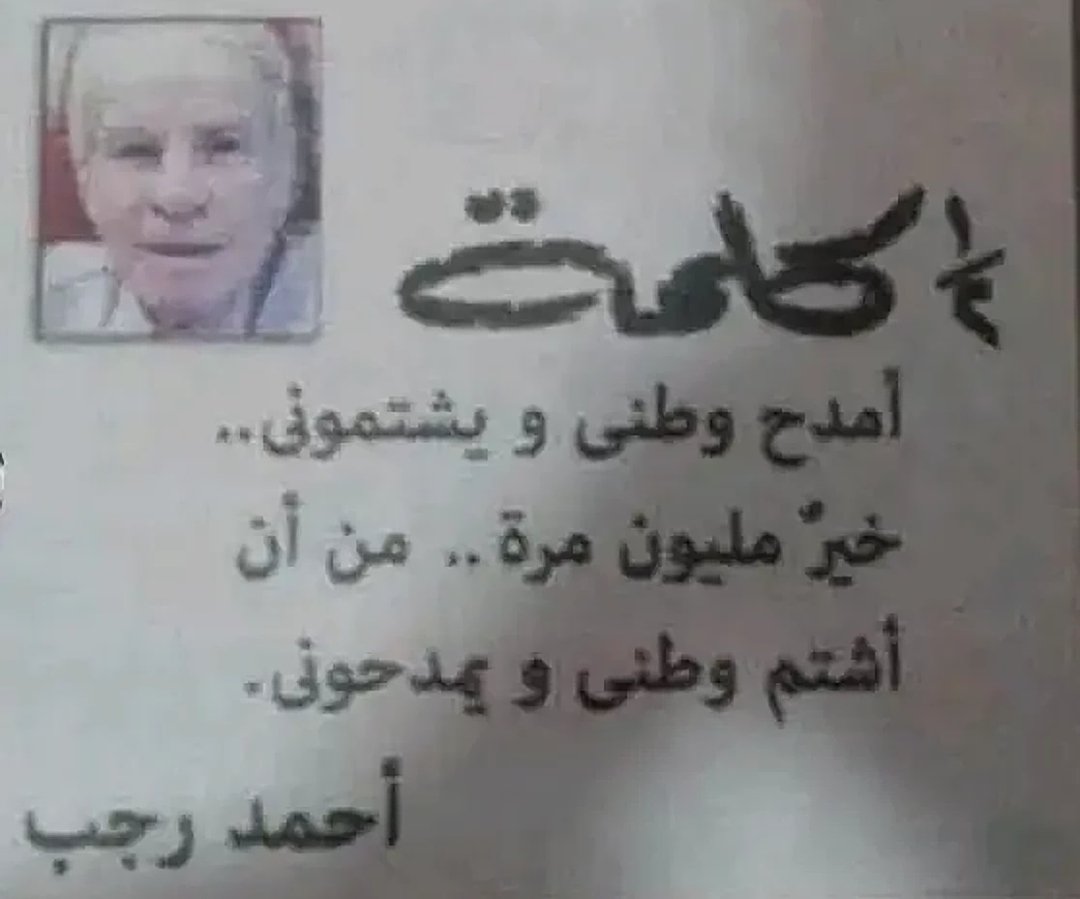 ½ كلمة
أمدح وطنى و يشتمونى..
خيرٌ مليون مرة .. من أن
أشتم وطنى و يمدحونى.
أحمد رجب